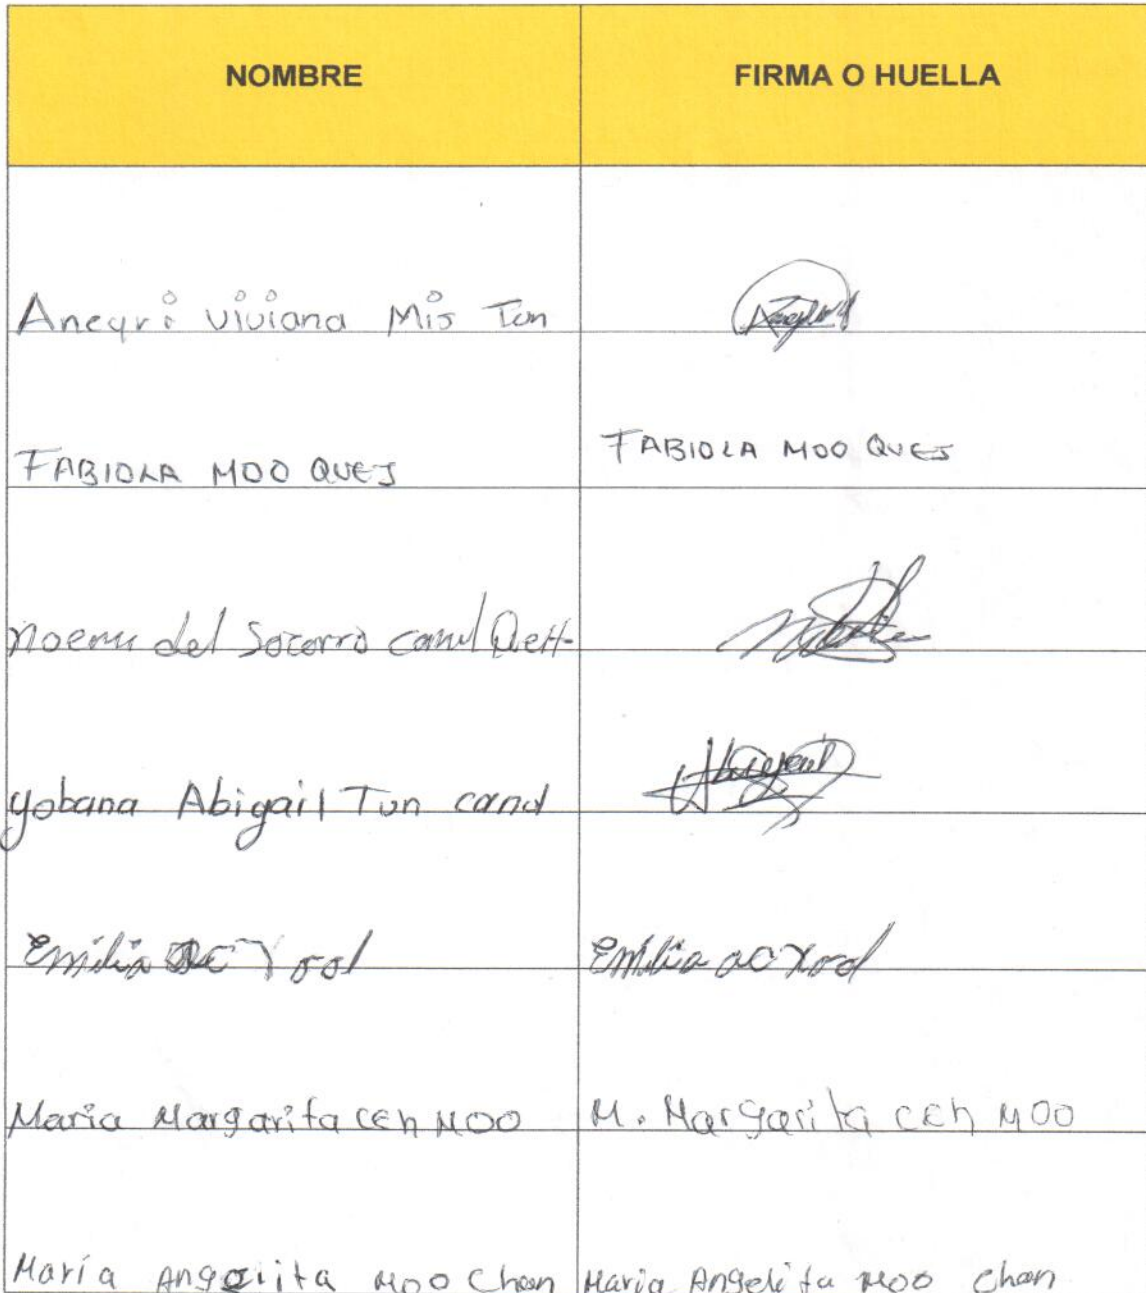 NOMBRE FIRMA O HUELLA
Anegri Viviana Mis Tun
FABIOLA MOO QUEJ FABIOLA MOO QUEJ
Noemi del Socorro canul
yobana Abigail Tun canul
Emilia Xool Emilia ac Xool
Maria Margarita ceh MOO M. Margarita ceh MOO
María Angelita MOO Chan Maria Angelita MOO chan